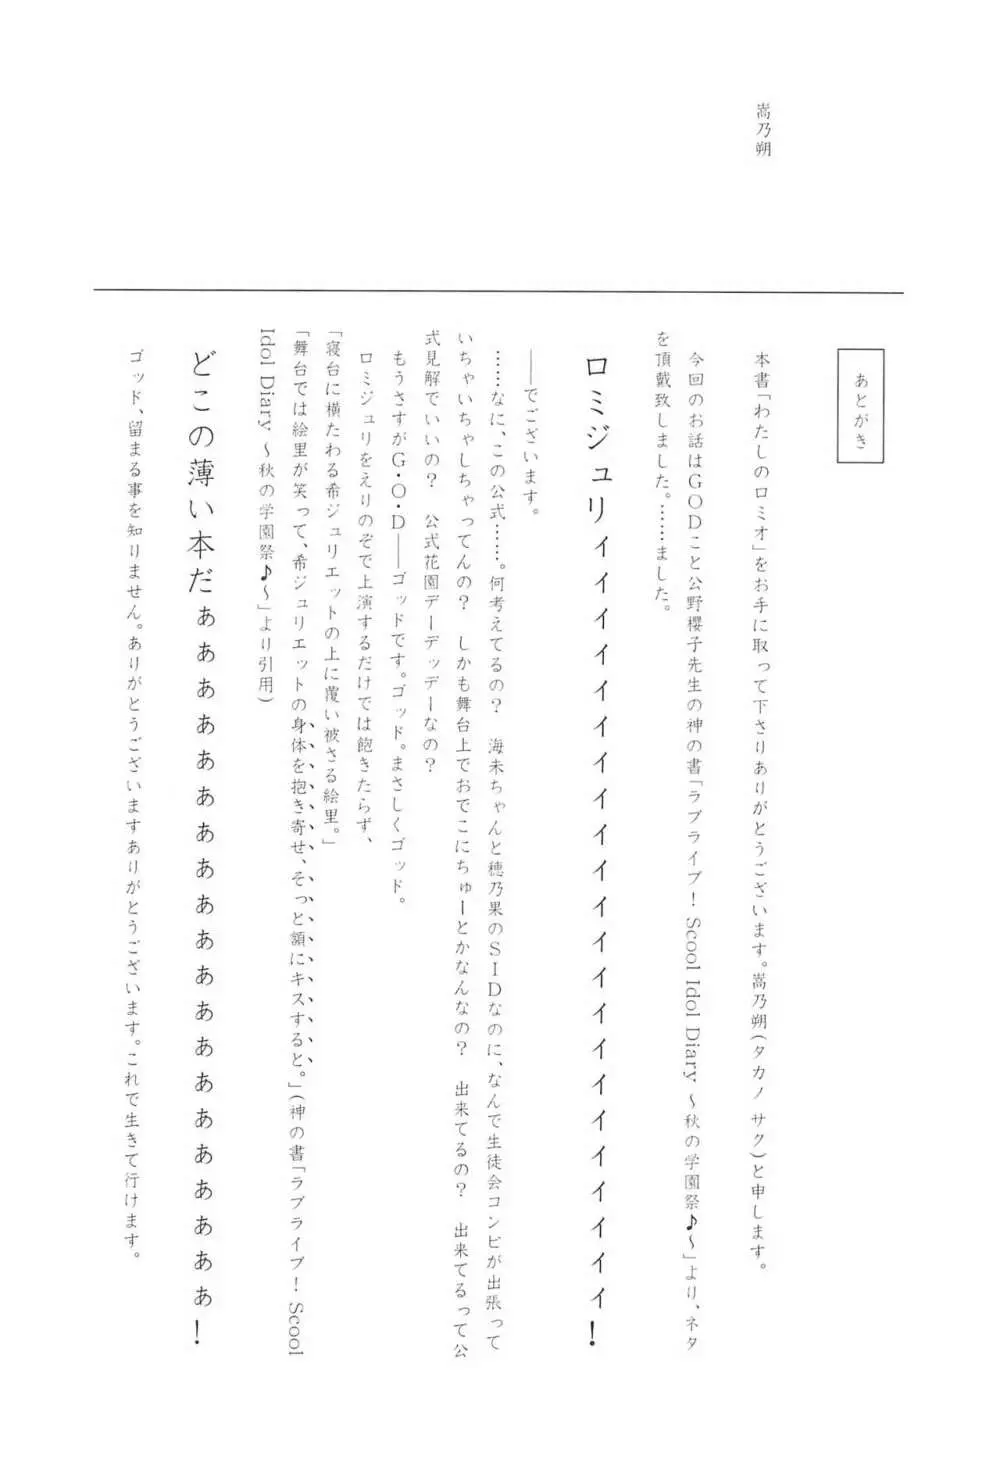 あとがき
本書「わたしのロミオ」をお手に取って下さりありがとうございます。嵩乃朔(タカノ サク)と申します。
今回のお話はGODこと公野櫻子先生の神の書「ラブライブ! Scool Idol Diary ～秋の学園祭♪～」より、ネタ
を頂戴致しました。……ました。
ロミジュリィィイイイイイイイイイイイイイイイイイイイイイ!
――でございます。
……なに、この公式……。何考えてるの? 海未ちゃんと穂乃果のSIDなのに、なんで生徒会コンビが出張って
いちゃいちゃしちゃってんの? しかも舞台上でおでこにちゅーとかなんなの? 出来てるの? 出来てるって公
式見解でいいの? 公式花園デーデッデーなの?
もうさすがG・O・D――ゴッドです。ゴッド。まさしくゴッド。
ロミジュリをえりのぞで上演するだけでは飽きたらず、
「寝台に横たわる希ジュリエットの上に覆い被さる絵里。」
「舞台では絵里が笑って、希ジュリエットの身体を抱き寄せ、そっと額にキスすると。」(神の書「ラブライブ! Scool
Idol Diary ～秋の学園祭♪～」より引用)
どこの薄い本だぁぁぁぁあああああああああああああああぁぁ!
ゴッド、留まる事を知りません。ありがとうございますありがとうございます。これで生きて行けます。
嵩乃朔